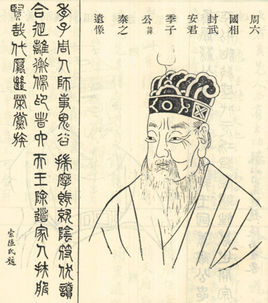 周六
國相
封武
安君
季子
公諱
秦之
遺像
季子周人師事鬼谷揣摩既就陰符伏讀
合從離衡佩印者六天王除道家人扶服
賢哉代厲繼榮黨族